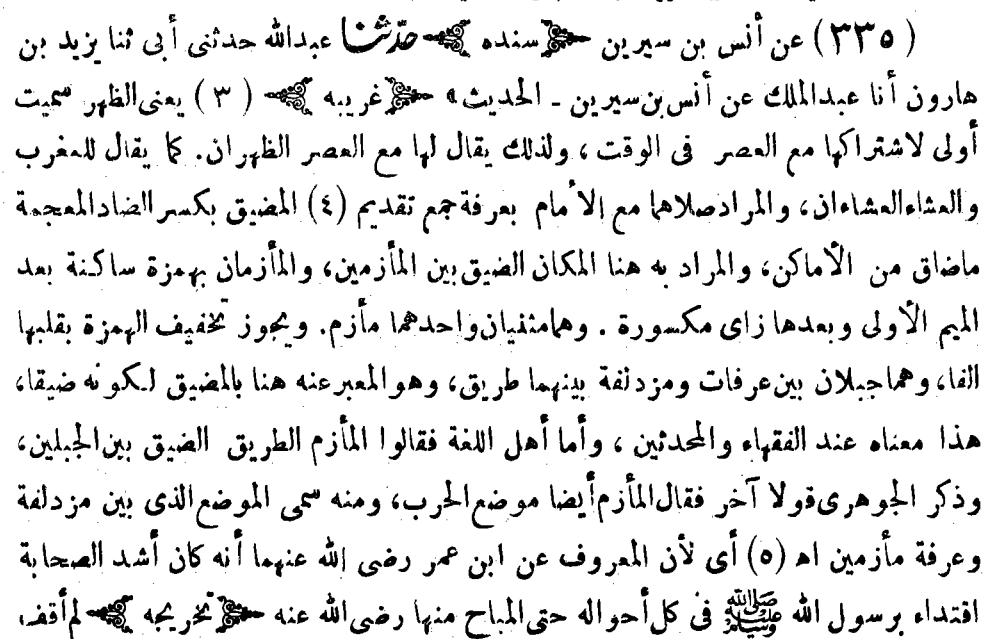 ( ٣٣٥ ) عن أنس بن سيرين ﴿ سنده ﴾ حدّثنا عبدالله حدثنى أبى ثنا يزيد بن
هارون أنا عبدالملك عن أنس بن سيرين ـ الحديث » ﴿ غريبه ﴾ ( ٣ ) يعنى الظهر سميت
أولى لاشتراكها مع العصر فى الوقت ، ولذلك يقال لها مع العصر الظهران. كما يقال للمغرب
والعشاء العشاءان، والمراد صلاهما مع الأمام بعرفة جمع تقديم (٤) المضيق بكسر الضاد المعجمة
ماضاق من الأماكن، والمراد به هنا المكان الضيق بين المأزمين، والمأزمان بهمزة ساكنة بعد
الميم الأولى وبعدها زاى مكسورة . وهما مثنيان واحدهما مأزم. ويجوز تخفيف الهمزة بقلبها
الفا، وهما جبلان بين عرفات ومزدلفة بينهما طريق، وهو المعبر عنه هنا بالمضيق لكونه ضيقا،
هذا معناه عند الفقهاء والمحدثين ، وأما أهل اللغة فقالوا المأزم الطريق الضيق بين الجبلين،
وذكر الجوهرى قولا آخر فقال المأزم أيضا موضع الحرب، ومنه سمى الموضع الذى بين مزدلفة
وعرفة مأزمين اه (٥) أى لأن المعروف عن ابن عمر رضى الله عنهما أنه كان أشد الصحابة
اقتداء برسول الله ﷺ فى كل أحواله حتى المباح منها رضى الله عنه ﴿ تخريجه ﴾ لم أقف